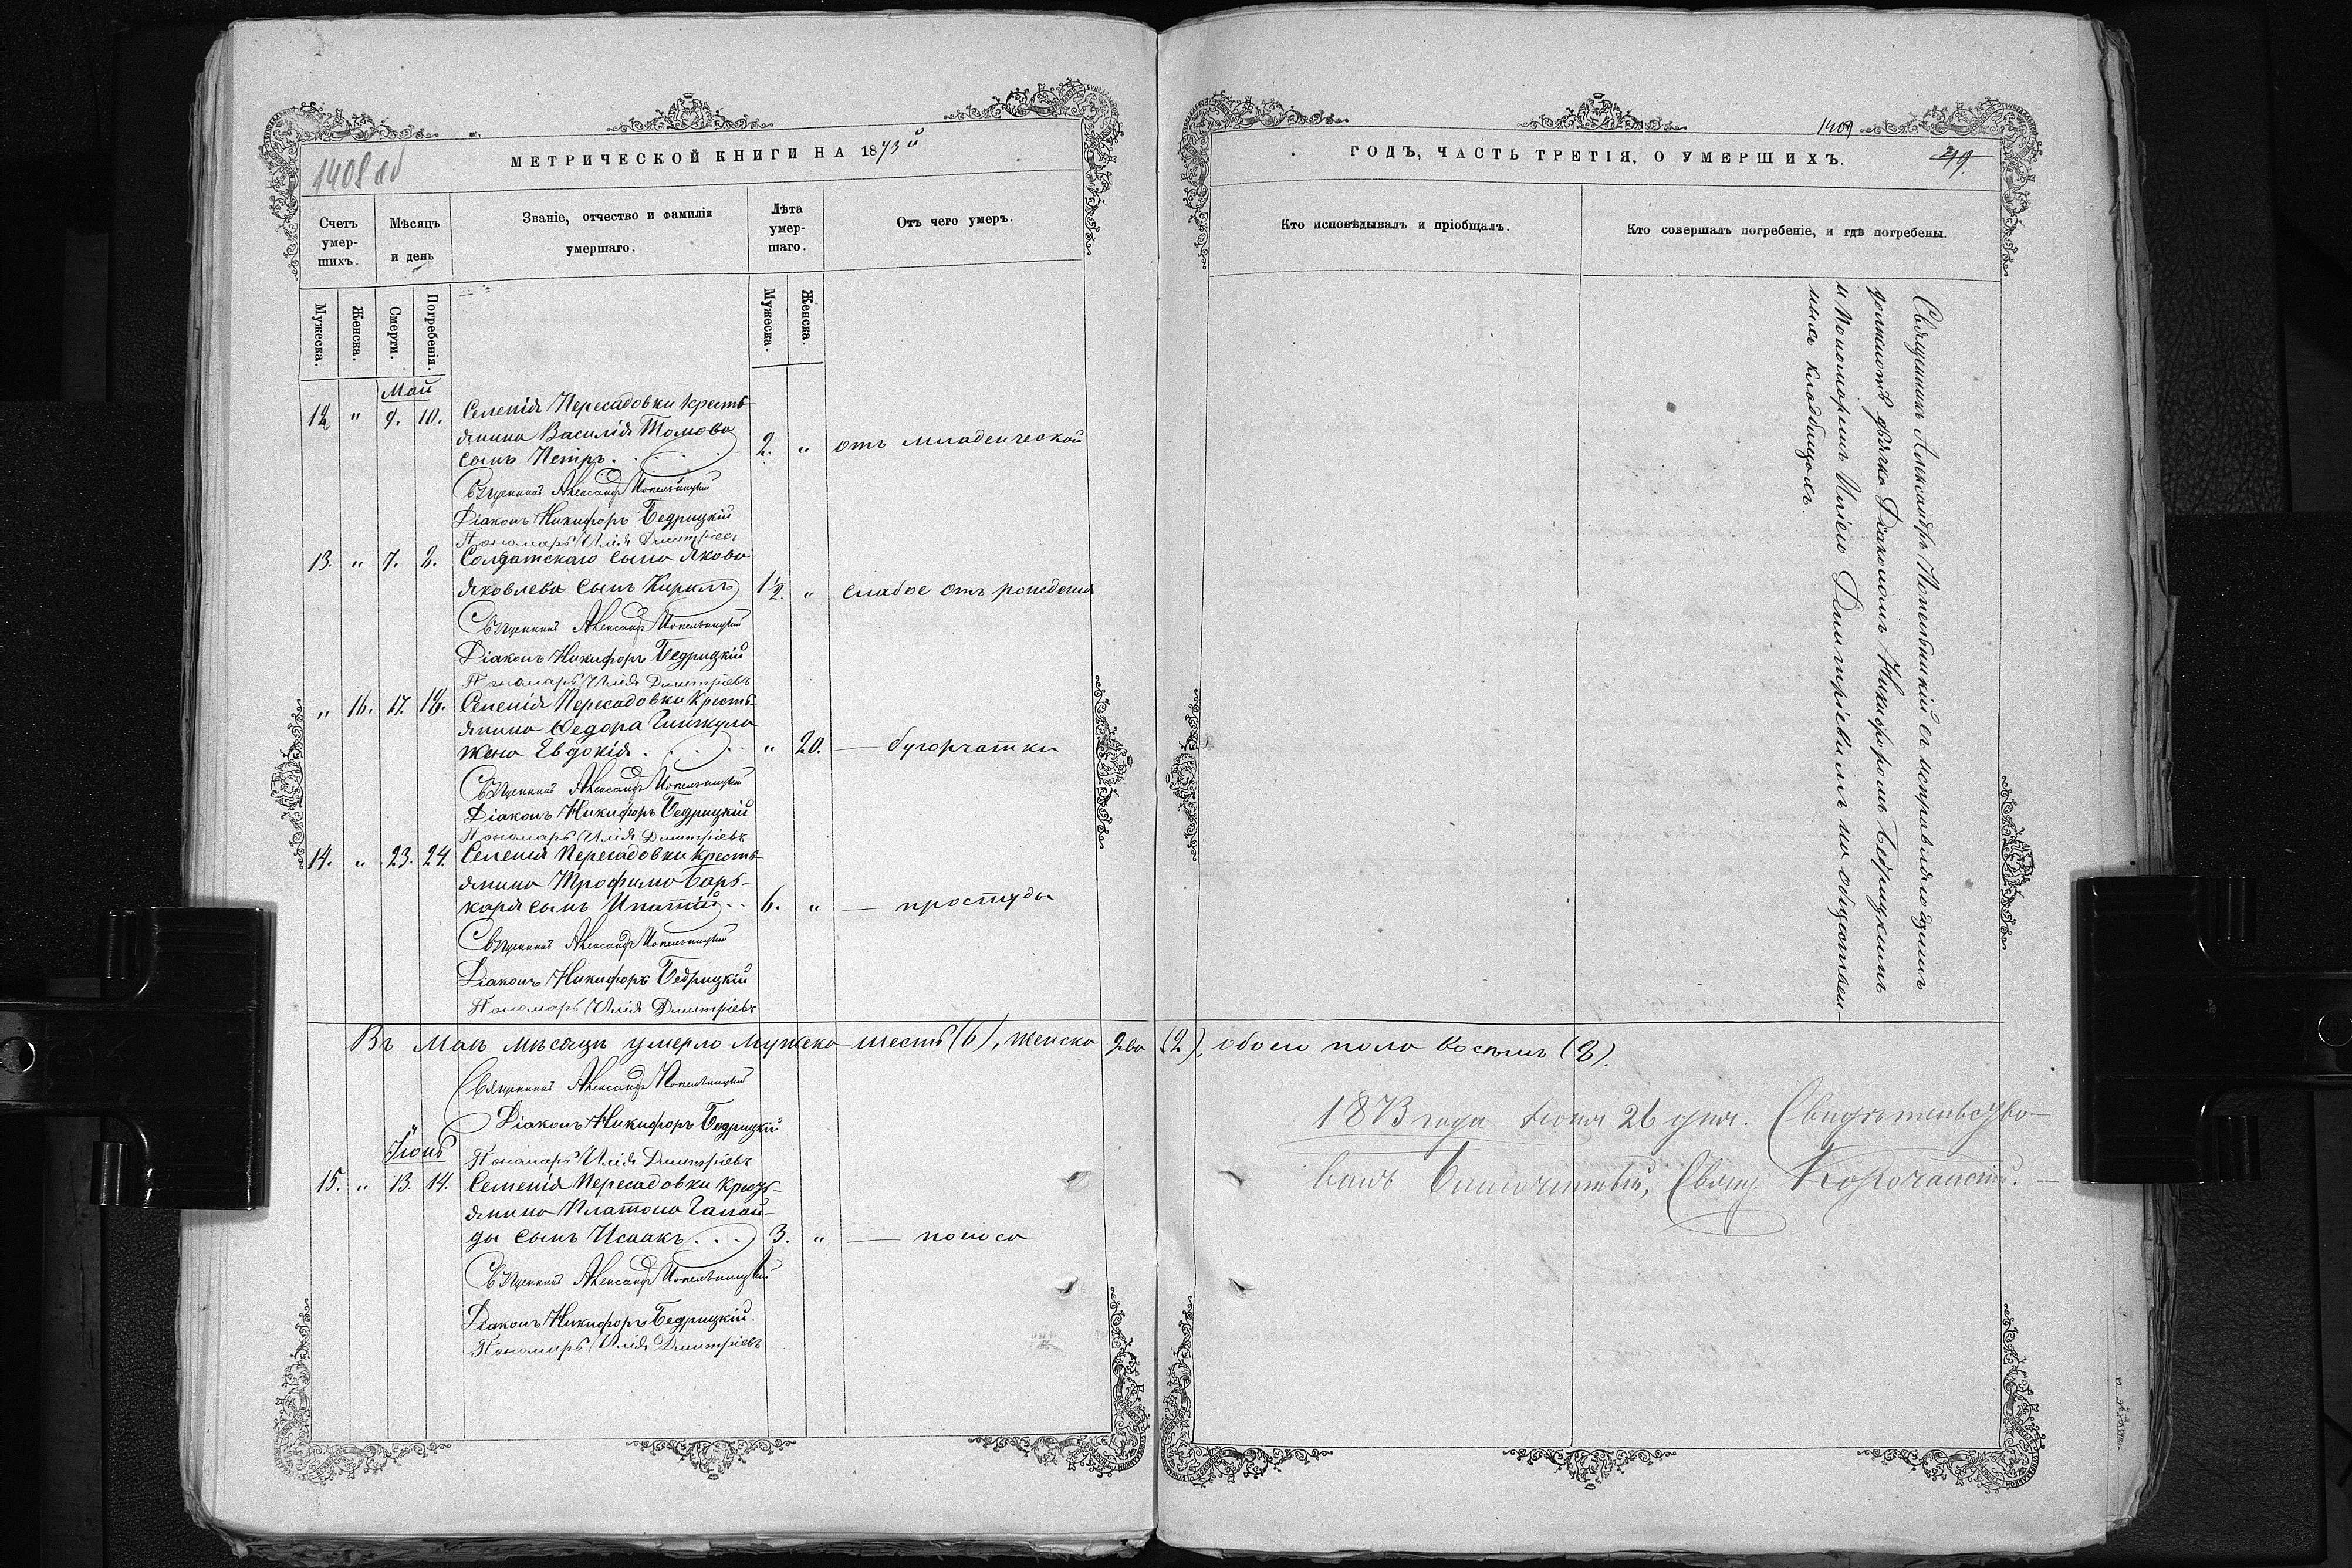 1408 об
МЕТРИЧЕСКОЙ КНИГИ НА 1873й
Счетъ умер-шихъ.
Мѣсяцъ и день
Званіе, отчество и фамилія умершаго.
Лѣта умер-шаго.
Отъ чего умеръ.
Мужеска.
Женска.
Смерти.
Погребенія.
Мужеска.
Женска.
Май
12 " 9. 10. Селенія Пересадовки кресть-
янина Василія Томова
сынъ Петръ. 2. " отъ младенческой
Священникъ Александръ Попельницкій
Діаконъ Никифоръ Бедрицкій
Пономарь Илія Димитріевъ
13. " 7. 8. Солдатскаго сына Якова
Яковлева сынъ Кирилъ 1½ " слабое отъ рожденія
Священникъ Александръ Попельницкій
Діаконъ Никифоръ Бедрицкій
Пономарь Илія Димитріевъ
" 16. 17. 18. Селенія Пересадовки кресть-
янина Федора
жена Евдокія " 20. — бугорчатки
Священникъ Александръ Попельницкій
Діаконъ Никифоръ Бедрицкій
Пономарь Илія Димитріевъ
14. " 23. 24. Селенія Пересадовки кресть-
янина Трофима Барь-
каря сынъ Ипатій 6. " — простуды
Священникъ Александръ Попельницкій
Діаконъ Никифоръ Бедрицкій
Пономарь Илія Димитріевъ
Въ Маѣ мѣсяцѣ умерло мужеска шесть (6), женска два (2), обоего пола восемь (8).
Священникъ Александръ Попельницкій
Діаконъ Никифоръ Бедрицкій
Пономарь Илія Димитріевъ
Іюнь
15. " 13. 14. Селенія Пересадовки крест-
янина Платона Галай-
ды сынъ Исаакъ 3. " — поноса
Священникъ Александръ Попельницкій
Діаконъ Никифоръ Бедрицкій.
Пономарь Илія Димитріевъ
1409
ГОДЪ, ЧАСТЬ ТРЕТІЯ, О УМЕРШИХЪ.
49.
Кто исповѣдывалъ и пріобщалъ.
Кто совершалъ погребеніе, и гдѣ погребены.
Священникъ Александръ Попельницкій съ исправляющимъ
должность дьячка Діакономъ Никифоромъ Бедрицкимъ
и Пономаремъ Иліею Димитріевымъ на общественн-
ныхъ кладбищахъ.
1873 года Іюня 26 дня. Свидѣтельство-
валъ Благочинный, Свящ.